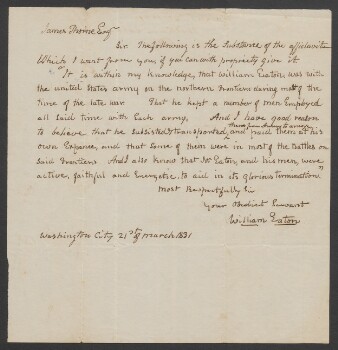 James Thorne Esqr
Sir. The following is the Substance of the affidavit
Which I want from you, if you can with propriety give it
"It is within my knowledge, that William Eaton, was with
the united States army on the northern Frontiers during most of the
time of the late war. That he kept a number of men Employed
all said time with Each army. And I have good reason
to believe that he subsisted, transported, and paid them at his
own Expense, and that some of them were in most of the battles on
said Frontiers. And I also know that Mr Eaton, and his men, were
active, faithful and Energetic, to aid in its glorious termination"
Most Respectfully Sir
Your Obedient Servant
William Eaton
Washington City 21st of March 1831